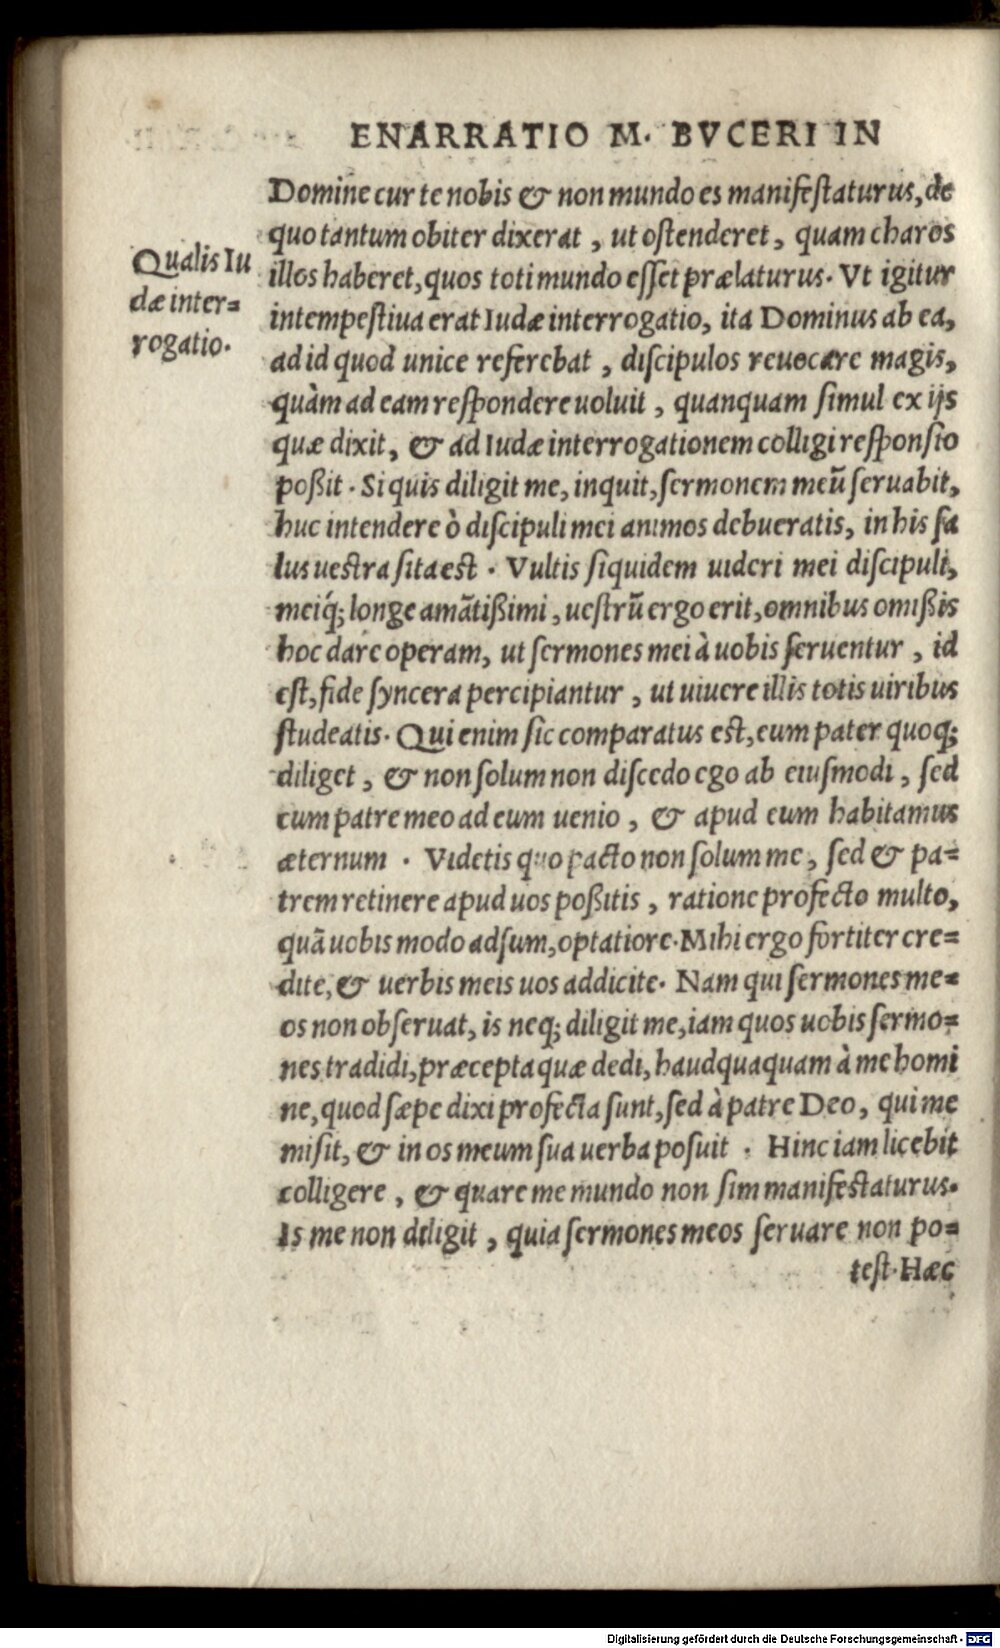 ENARRATIO M. BVCERI IN
Domine cur te nobis & non mundo es manifestaturus, de
quo tantum obiter dixerat, ut ostenderet, quam charos
illos haberet, quos toti mundo esset prælaturus. Vt igitur
intempestiua erat Iudæ interrogatio, ita Dominus ab ea,
ad id quod unice referebat, discipulos reuocare magis,
quàm ad eam respondere uoluit, quanquam simul ex ijs
quæ dixit, & ad Iudæ interrogationem colligi responsio
poßit. Si quis diligit me, inquit, sermonem meũ seruabit,
huc intendere ò discipuli mei animos debueratis, in his sa
lus uestra sita est. Vultis siquidem uideri mei discipuli,
meiq́; longe amãtißimi, uestrũ ergo erit, omnibus omißis
hoc dare operam, ut sermones mei à uobis seruentur, id
est, fide syncera percipiantur, ut uiuere illis totis uiribus
studeatis. Qui enim sic comparatus est, eum pater quoq;
diliget, & non solum non discedo ego ab eiusmodi, sed
cum patre meo ad eum uenio, & apud eum habitamus
æternum. Videtis quo pacto non solum me, sed & pa=
trem retinere apud uos poßitis, ratione profecto multo,
quã uobis modo adsum, optatiore. Mihi ergo fortiter cre=
dite, & uerbis meis uos addicite. Nam qui sermones me=
os non obseruat, is neq; diligit me, iam quos uobis sermo=
nes tradidi, præcepta quæ dedi, haudquaquam à me homi
ne, quod sæpe dixi profecta sunt, sed à patre Deo, qui me
misit, & in os meum sua uerba posuit. Hinc iam licebit
colligere, & quare me mundo non sim manifestaturus.
Is me non diligit, quia sermones meos seruare non po=
test. Hæc
Qualis Iu
dæ inter=
rogatio.
Digitalisierung gefördert durch die Deutsche Forschungsgemeinschaft - DFG